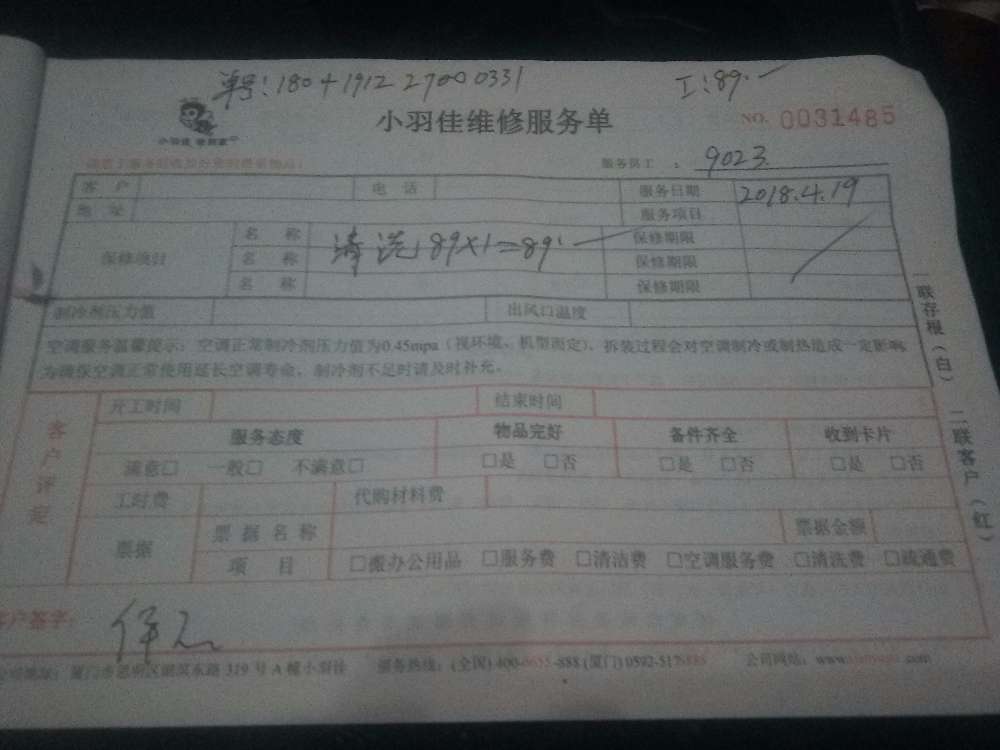 单号:1804191227000331 工:89.一
小羽佳维修服务单
NO. 0031485
小羽佳
服务员工 : 9023.
客 户 电 话 服务日期 2018.4.19
地 址 服务项目
保修项目
名 称 清洗89×1=89.一 保修期限
名 称 保修期限
名 称 保修期限
制冷剂压力值 出风口温度
空调服务温馨提示:空调正常制冷剂压力值为0.45mpa(视环境、机型而定)、拆装过程会对空调制冷或制热造成一定影响,
为确保空调正常使用延长空调寿命,制冷剂不足时请及时补充。
一联存根(白) 二联客户(红)
客户评定
开工时间 结束时间
服务态度 物品完好 备件齐全 收到卡片
满意□ 一般□ 不满意□ □是 □否 □是 □否 □是 □否
工时费 代购材料费
票据 票据名称 票据金额
项 目 □搬办公用品 □服务费 □清洁费 □空调服务费 □清洗费 □疏通费
客户签字:
公司地址:厦门市思明区湖滨东路319号A幢小羽佳 服务热线:(全国)400- -888 (厦门)0592- 公司网站:www. .com